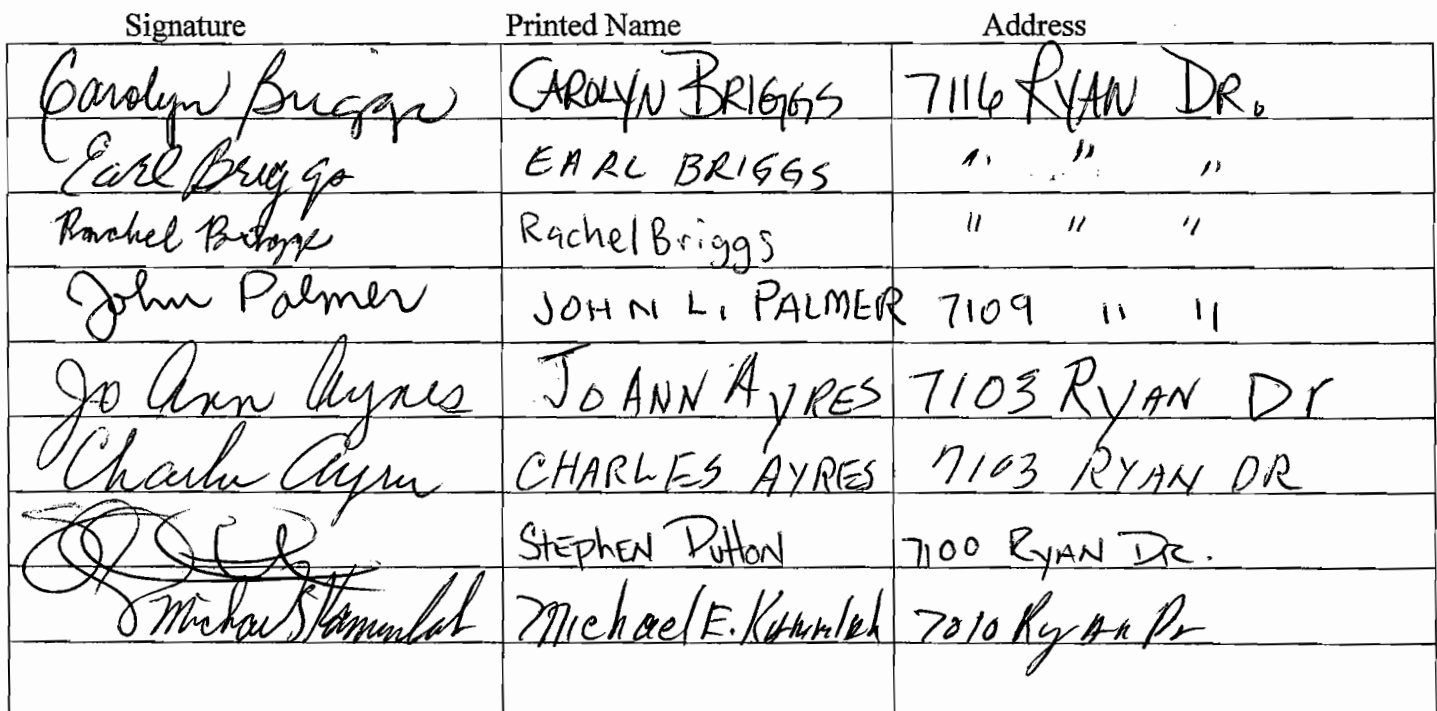 Signature Printed Name Address
Carolyn Briggs CAROLYN BRIGGS 7116 RYAN DR.
Earl Briggs EARL BRIGGS " " "
Rachel Briggs Rachel Briggs " " "
John Palmer JOHN L. PALMER 7109 " "
Jo Ann Ayres JO ANN AYRES 7103 RYAN Dr
Charles Ayres CHARLES AYRES 7103 RYAN DR
STEPHEN DUTTON 7100 RYAN DR.
Michael E. Michael E. 7010 Ryan Dr